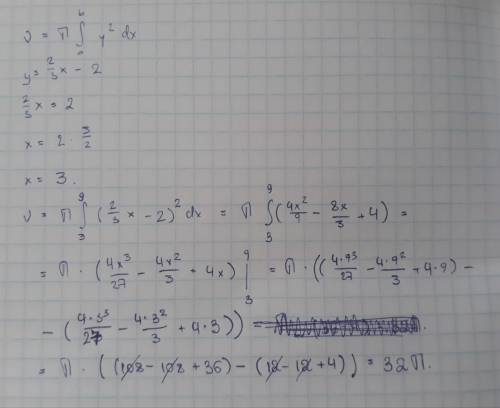 υ = π ∫ₐᵇ y² dx
y = 2/3 x - 2
2/3 x = 2
x = 2 · 3/2
x = 3.
υ = π ∫₃⁹ (2/3 x - 2)² dx = π ∫₃⁹ (4x²/9 - 8x/3 + 4) =
= π · (4x³/27 - 4x²/3 + 4x) |₃⁹ = π · ((4·9³/27 - 4·9²/3 + 4·9) -
- (4·3³/27 - 4·3²/3 + 4·3)) =
= π · ((108 - 108 + 36) - (12 - 12 + 4)) = 32π.